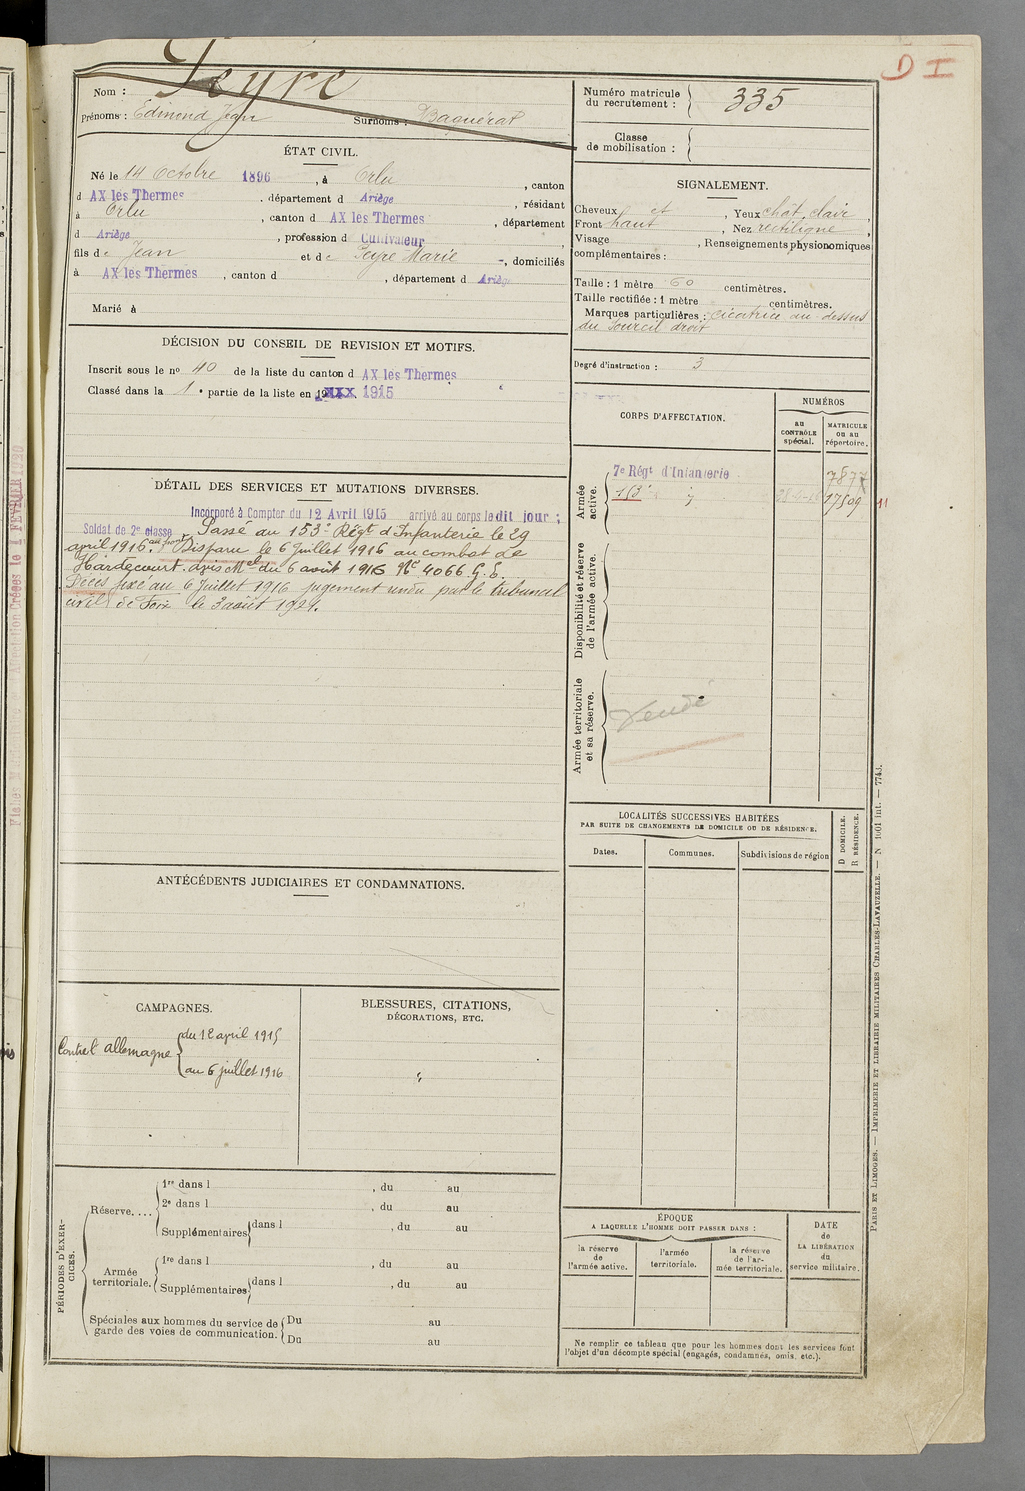 D I
Peyre
Nom :
Prénoms : Edmond Jean Surnoms : Baquérat
Numéro matricule du recrutement : 335
Classe de mobilisation :
ÉTAT CIVIL.
Né le 14 Octobre 1896, à Orlu, canton
d AX les Thermes, département d Ariège, résidant
à Orlu, canton d AX les Thermes, département
d Ariège, profession d Cultivateur,
fils de Jean et de Peyre Marie, domiciliés
à AX les Thermes, canton d , département d Ariège
Marié à
SIGNALEMENT.
Cheveux ct, Yeux chât. clair,
Front haut, Nez rectiligne,
Visage , Renseignements physionomiques
complémentaires :
Taille : 1 mètre 60 centimètres.
Taille rectifiée : 1 mètre centimètres.
Marques particulières : cicatrice au-dessus
du sourcil droit
Degré d'instruction : 3
DÉCISION DU CONSEIL DE REVISION ET MOTIFS.
Inscrit sous le no 40 de la liste du canton d AX les Thermes
Classé dans la 1e partie de la liste en 1915
CORPS D'AFFECTATION.
NUMÉROS
au CONTRÔLE spécial.
MATRICULE ou au répertoire.
Armée active.
7e Régt d'Infanterie 7877
153e " 17509
11
Disponibilité et réserve de l'armée active.
Armée territoriale et sa réserve.
DÉTAIL DES SERVICES ET MUTATIONS DIVERSES.
Incorporé à Compter du 12 Avril 1915 arrivé au corps le dit jour ;
Soldat de 2e classe Passé au 153e Régt d'Infanterie le 29
avril 1916. au front Disparu le 6 juillet 1916 au combat de
Hardecourt. avis Mel du 6 août 1916 No 4066 G.E.
Décès fixé au 6 juillet 1916 jugement rendu par le tribunal
civil de Foix le 3 août 1921.
LOCALITÉS SUCCESSIVES HABITÉES
PAR SUITE DE CHANGEMENTS DE DOMICILE OU DE RÉSIDENCE.
Dates.
Communes.
Subdivisions de région
D DOMICILE.
R RÉSIDENCE.
ANTÉCÉDENTS JUDICIAIRES ET CONDAMNATIONS.
CAMPAGNES.
Contre l'allemagne du 12 april 1915
au 6 juillet 1916
BLESSURES, CITATIONS,
DÉCORATIONS, ETC.
"
PÉRIODES D'EXERCICES.
Réserve....
1re dans l , du au
2e dans l , du au
Supplémentaires dans l , du au
Armée territoriale.
1re dans l , du au
Supplémentaires dans l , du au
Spéciales aux hommes du service de garde des voies de communication.
Du au
Du au
ÉPOQUE
A LAQUELLE L'HOMME DOIT PASSER DANS :
la réserve de l'armée active.
l'armée territoriale.
la réserve de l'armée territoriale.
DATE de LA LIBÉRATION du service militaire.
Ne remplir ce tableau que pour les hommes dont les services font
l'objet d'un décompte spécial (engagés, condamnés, omis, etc.).
PARIS ET LIMOGES. — IMPRIMERIE ET LIBRAIRIE MILITAIRES CHARLES-LAVAUZELLE. — N 1001 int. — 7743.